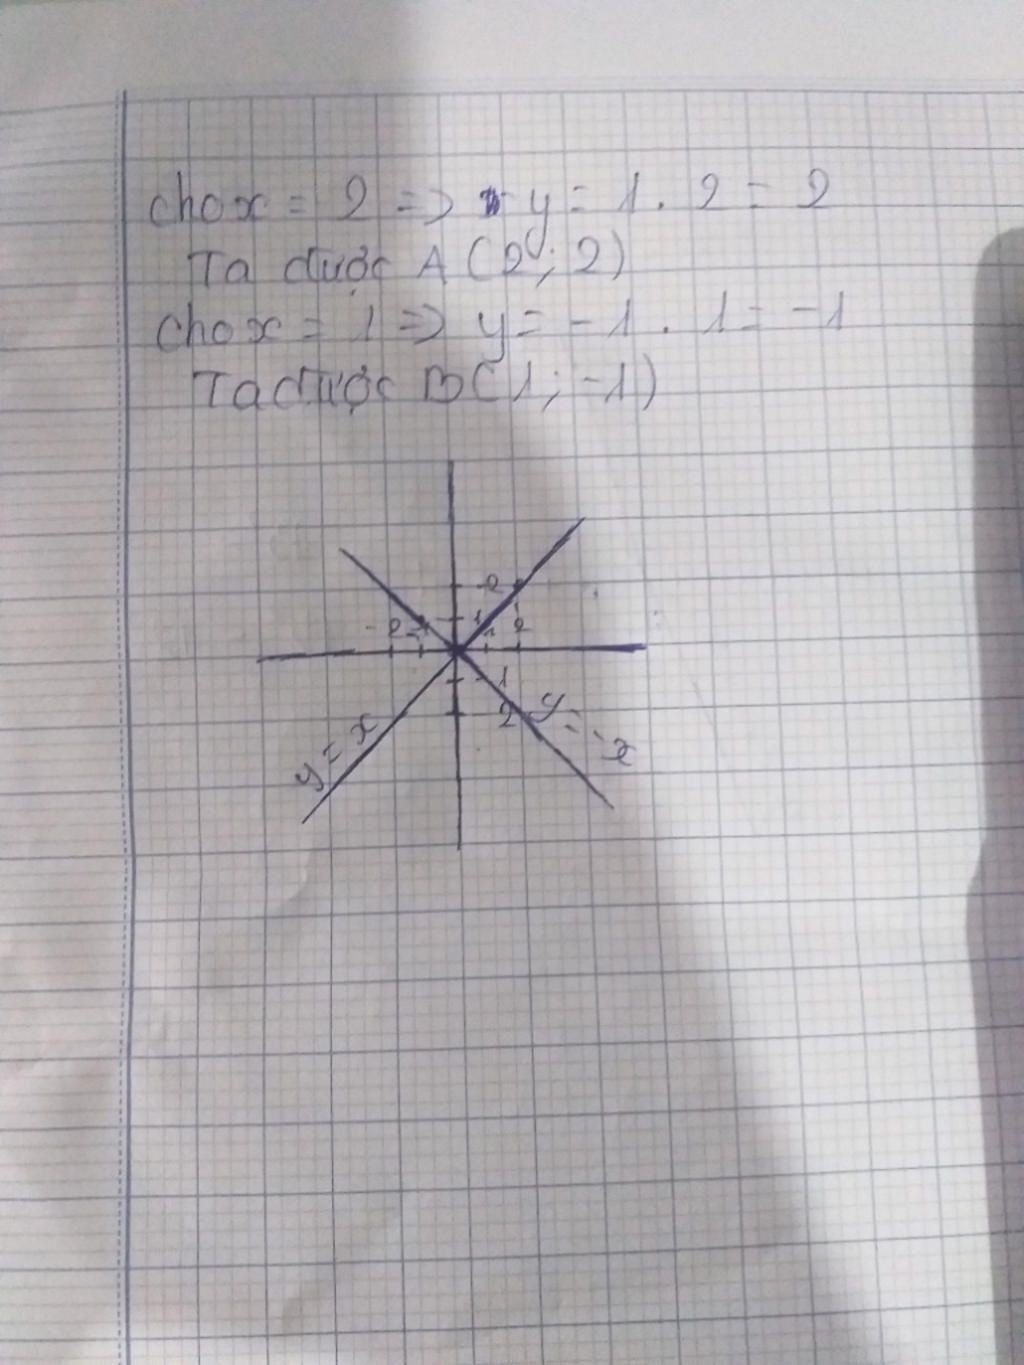 cho x = 2 => y = 1 . 2 = 2
Ta được A (2 ; 2)
cho x = 1 => y = -1 . 1 = -1
Ta được B (1 ; -1)
2
-2 -1 1 1 2
1
2 y = -x
y = x